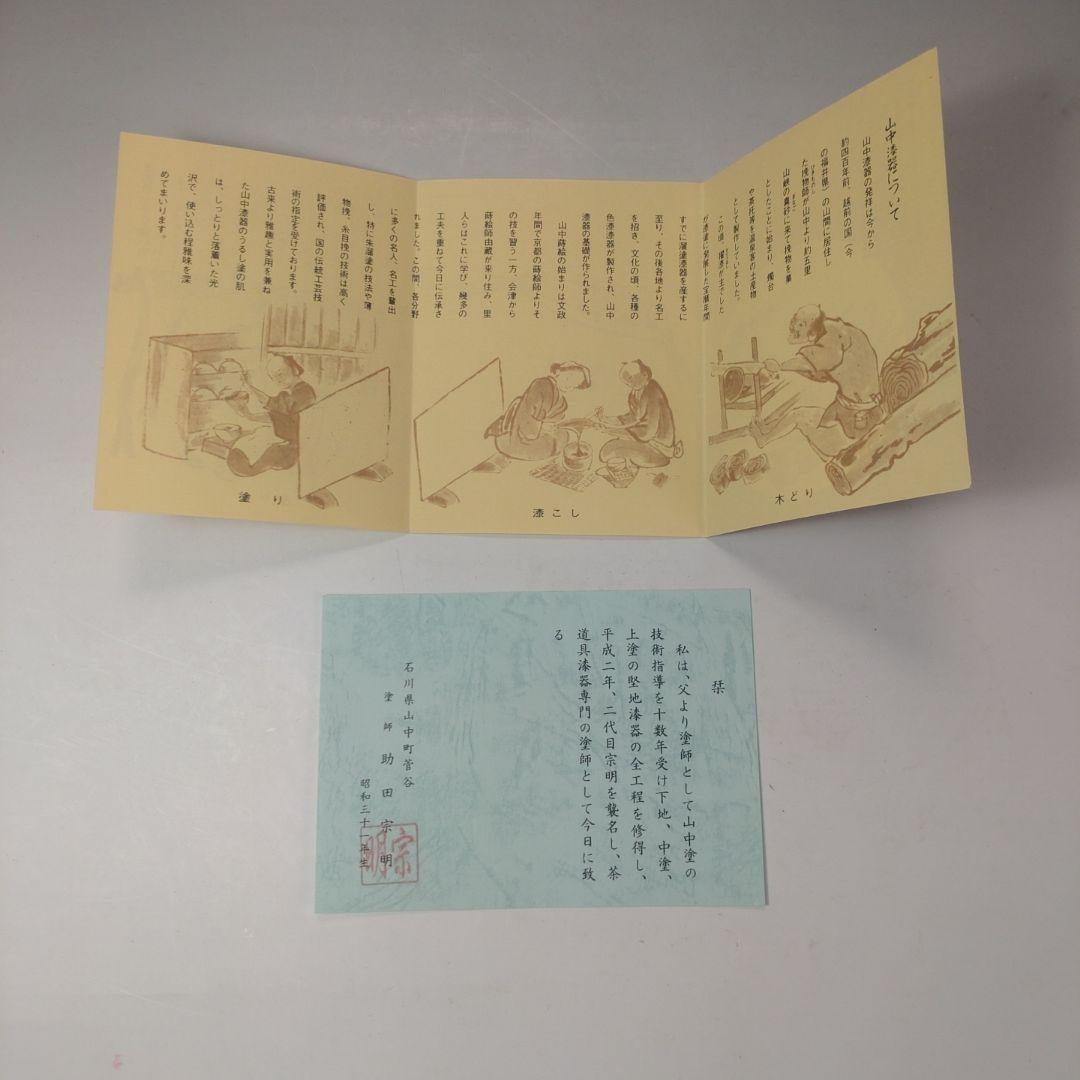 山中漆器について
山中漆器の発祥は今から
約四百年前、越前の国（今
の福井県）の山間に居住し
た挽物師が山中より約五里
山峡の真砂に来て挽物を業
としたことに始まり、燭台
や茶托等を温泉客の土産物
として製作していました。
この頃、
すでに溜塗漆器を産するに
至り、その後各地より名工
を招き、文化の頃、各種の
色漆漆器が製作され、山中
漆器の基礎が作られました。
山中蒔絵の始まりは文政
年間で京都の蒔絵師よりそ
の技を習う一方、会津から
蒔絵師由蔵が来り住み、里
人らはこれに学び、幾多の
工夫を重ねて今日に伝承さ
れました。この間、各分野
に多くの名人、名工を輩出
し、特に朱溜塗の技法や薄
物挽、糸目挽の技術は高く
評価され、国の伝統工芸技
術の指定を受けております。
古来より雅趣と実用を兼ね
た山中漆器のうるし塗の肌
は、しっとりと落着いた光
沢で、使い込む程雅味を深
めてまいります。
木どり
漆こし
塗り
栞
私は、父より塗師として山中塗の
技術指導を十数年受け下地、中塗、
上塗の堅地漆器の全工程を修得し、
平成二年、二代目宗明を襲名し、茶
道具漆器専門の塗師として今日に致
る
石川県山中町菅谷
塗師 助田宗明
昭和三十一年生
宗明